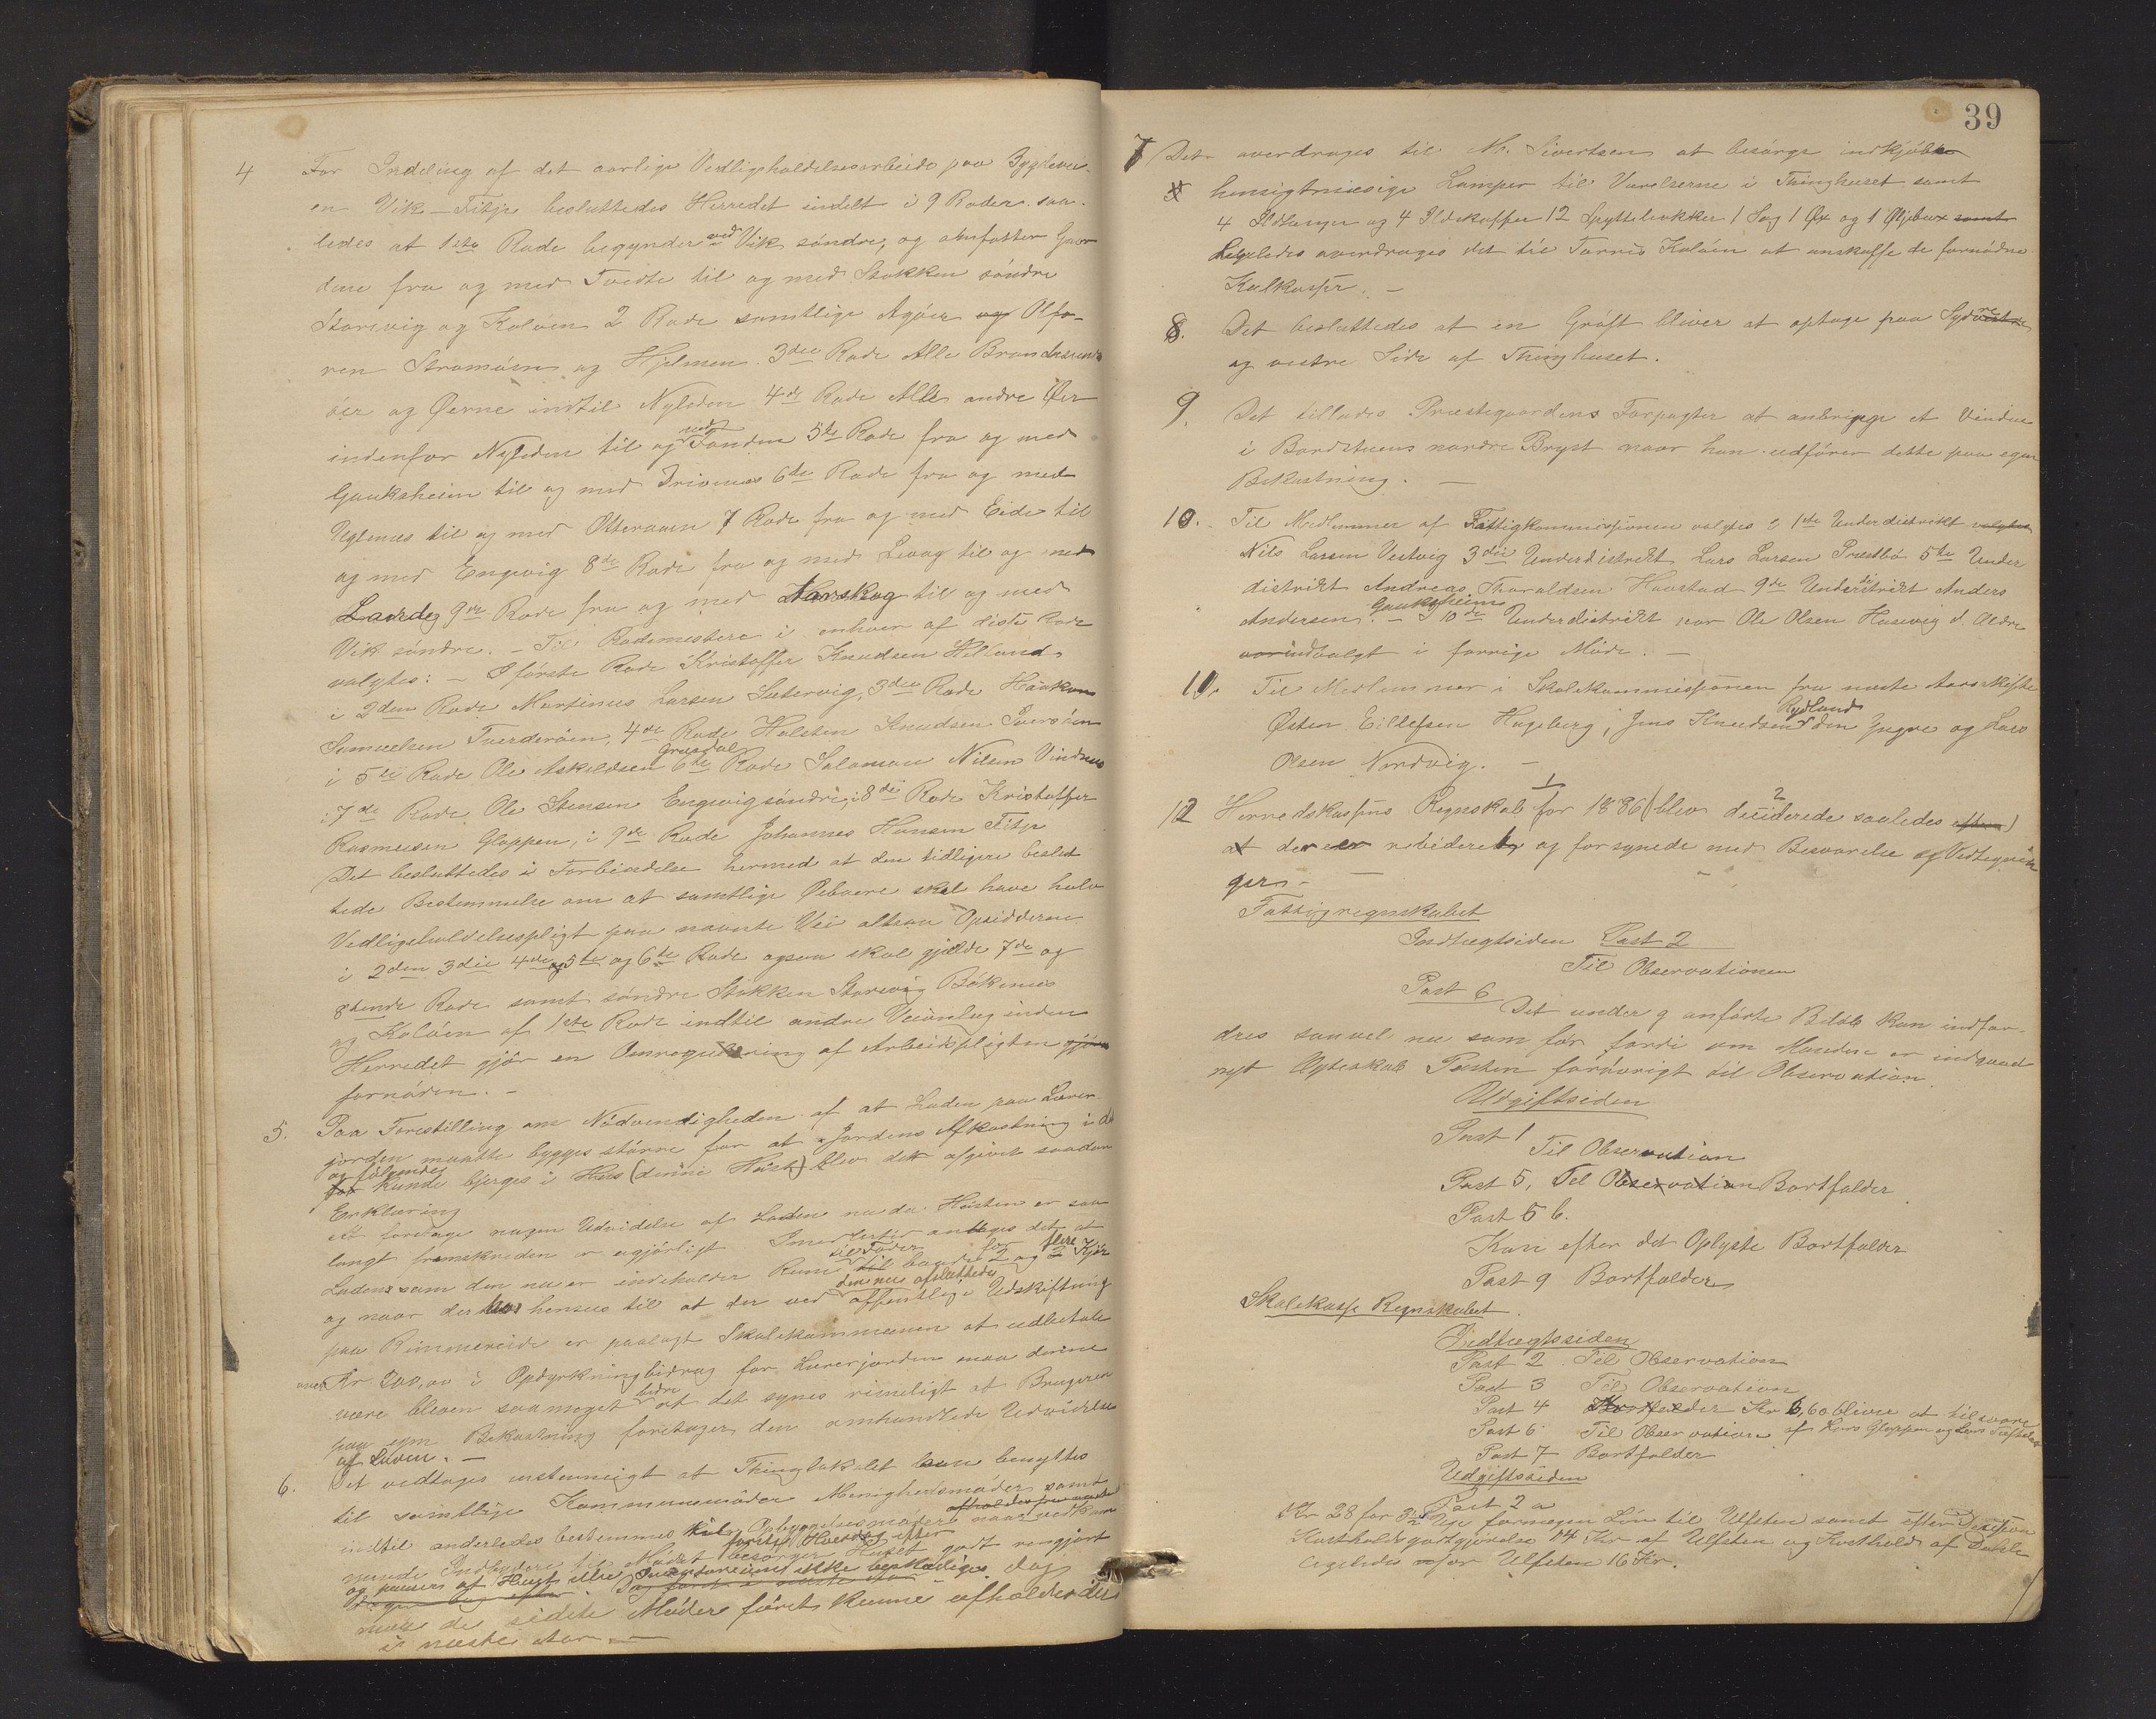 4 For Indeling af det aarlige Vedligeholdelsesarbeide paa Bygdevei-
en Vik - Fitje besluttedes Herredet indelt i 9 Roder saa-
ledes at 1ste Rode begynder ved Vik søndre, og omfatter Gaar
dene fra og med Tvedte til og med Stokken søndre
Storevig og Koløen 2 Rode samtlige Agøer og Olfo-
ren Stromøen og Hjelmen. 3die Rode Alle Brandasunds
øer og Øerne indtil Nyleden 4de Rode Alle andre Øer
indenfor Nyleden til og med Fonden 5te Rode fra og med
Gauksheim til og med Drivenes 6te Rode fra og med
Uglenes til og med Otteraaen 7 Rode fra og med Eide til
og med Engevig 8de Rode fra og med Levaag til og med
9de Rode fra og med Narskog til og med
Vik søndre. - Til Rodemestere i enhver af disse Rode
valgtes: - I første Rode Kristoffer Knudsen Helland
i 2den Rode Martinus Larsen Sætervig, 3die Rode Håakon
Samuelsen Tverderøen, 4de Rode Halsten Knudsen Iversøen
i 5te Rode Ole Askildsen Græsdal 6te Rode Salamon Nilsen Vindnes
i 7de Rode Ole Stensen Engevig søndre, i 8de Rode Kristoffer
Rasmusen Gloppen, i 9de Rode Johannes Hansen Fitje
Det besluttedes i Forbindelse hermed at den tidligere beslut
tede Bestemmelse om at samtlige Øebuere skal have halv
Vedligeholdelsespligt paa nævnte Vei altsaa Opsidderne
i 2den 3die 4de og 5te og 6te Rode ogsaa skal gjælde 7de og
8tende Rode samt søndre Stokken Storevig Bökenes
og Koløen af 1ste Rode indtil andre Veianlæg inden
Herredet gjør en Omregulering af Arbeidspligten
fornøden. -
5. Paa Forestilling om Nødvendigheden af at Laden paa Lærer
jorden maatte bygges større for at Jordens Afkastning i de
og følgende kunde bjerges i Hus (denne Høst) blev det afgivet saadan
Erklæring
At foretage nogen Udvidelse af Laden nu da Høsten er saa
langt fremskreden er ugjørligt Imidlertid antages det at
Laden som den nu er indeholder Rum til Foder for 2 og flere Kjør
og naar der hos henses til at der ved den nu afsluttede offentlige Udskiftning
paa Rimmereide er paalagt Skolekommunen at udbetale
over Kr. 200,00 i Opdyrkningbidrag for Lærerjorden maa denne
være bleven saameget bedre at det synes rimeligt at Brugeren
paa egen Bekostning foretager den omhandlede Udvidelse
af Laden. -
6. Det vedtages enstemmigt at Thinglokalet kan benyttes
til samtlige Kommunemøder Menighedsmøder samt
indtil anderledes bestemmes Opbyggelsesmøder naar vedkom
mende Indbydere til Mødet besørger Huset godt rengjort
og passer at Huset eller Inventariet ikke beskadiges dog
maa de sidste Møder først kunne afholdes
i næste Aar. -
39
7 Det overdrages til M. Sivertsen at besørge indkjøbt
hensigtmæssige Lamper til Værelserne i Thinghuset samt
4 Ildtænger og 4 Ildskuffer 12 Spyttebakker 1 Sag 1 Øx og 1 Øljebox samt
Ligeledes overdrages det til Tørris Koløen at anskaffe de fornødne
Kulkasser. -
8. Det besluttedes at en Grøft bliver at optage paa Sydre
og vestre Side af Thinghuset.
9. Det tillades Præstegaardens Forpagter at anbringe et Vindue
i Bordstuens nordre Bryst naar han udfører dette paa egen
Bekostning. -
10. Til Medlemmer af Fattigkommissionen valgtes i 1ste Underdistrikt valgtes
Nils Larsen Vestvig 3die Underdistrikt Lars Larsen Præstbø 5te Under
distrikt Andreas Tharaldsen Havstad 9de Underdistrikt Anders
Andersen Gauksheim. - I 10de Underdistrikt var Ole Olsen Husevig d. Ældre
indvalgt i forrige Møde. -
11. Til Medlemmer i Skolekommissionen fra næste Aarsskifte
Østen Eillefsen Hageberg, Jens Knudsen Rydland den Yngre og Lars
Olsen Nordvig. -
12 Herredskassens Regnskab for 1886 blev deciderede saaledes
at de er reviderede og forsynede med Besvarelse og Vedtegnin
ger. -
Fattigregnskabet
Indtægtsiden Post 2
Til Observationen
Post 6
Det under 9 anførte Beløb kan indfor-
dres saavel nu som før fordi om Manden er indgaaet
nyt Ægteskab Posten forøvrigt til Observation.
Udgiftsiden
Post 1
Til Observation
Post 5, Til Observation Bortfalder
Post 5 b.
Kan efter det Oplyste Bortfalder
Post 9 Bortfalder
Skolekasse Regnskabet.
Indtægtssiden
Post 2 Til Observation
Post 3 Til Observation
Post 4 Bortfalder Kr 6,60 bliver at tilsvare
Post 6 Til Observation af Lars Gloppen og Lars
Post 7 Bortfalder
Udgiftssiden
Post 2 a
Kr 28 for 3½ Uge formegen Løn til Ulfsten samt efter
Kostholdsgodtgjørelse 14 Kr af Ulfsten og Kosthold af Dahle
Ligeledes for Ulfsten 16 Kr.